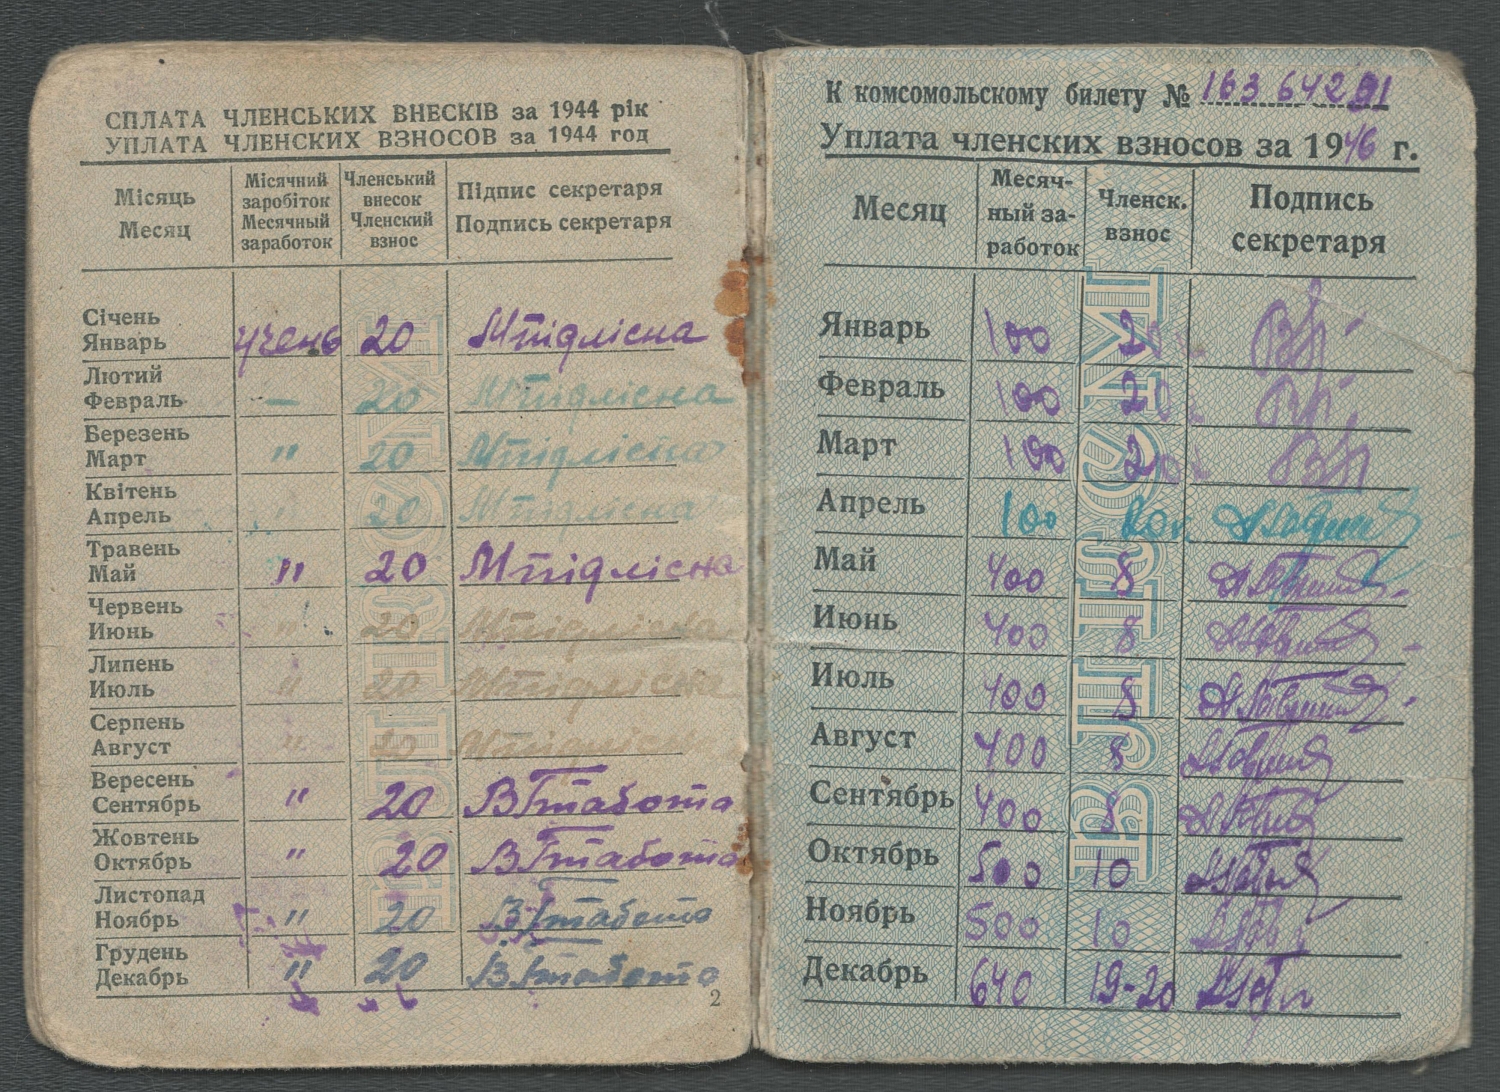 СПЛАТА ЧЛЕНСЬКИХ ВНЕСКІВ за 1944 рік
УПЛАТА ЧЛЕНСКИХ ВЗНОСОВ за 1944 год
Місяць
Месяц
Місячний
заробіток
Месячный
заработок
Членський
внесок
Членский
взнос
Підпис секретаря
Подпись секретаря
Січень
Январь учень 20 Мпідлісна
Лютий
Февраль — 20 Мпідлісна
Березень
Март " 20 Мпідлісна
Квітень
Апрель " 20 Мпідлісна
Травень
Май " 20 Мпідлісна
Червень
Июнь " 20 Мпідлісна
Липень
Июль " 20 Мпідлісна
Серпень
Август " 20 Мпідлісна
Вересень
Сентябрь " 20
Жовтень
Октябрь " 20
Листопад
Ноябрь " 20
Грудень
Декабрь " 20
2
К комсомольскому билету №
Уплата членских взносов за 1946 г.
Месяц
Месяч-
ный за-
работок
Членск.
взнос
Подпись
секретаря
Январь 100 20к
Февраль 100 20к
Март 100 20к
Апрель 100 20к
Май 400 8
Июнь 400 8
Июль 400 8
Август 400 8
Сентябрь 400 8
Октябрь 500 10
Ноябрь 500 10
Декабрь 640 19-20
ВЛКСМ